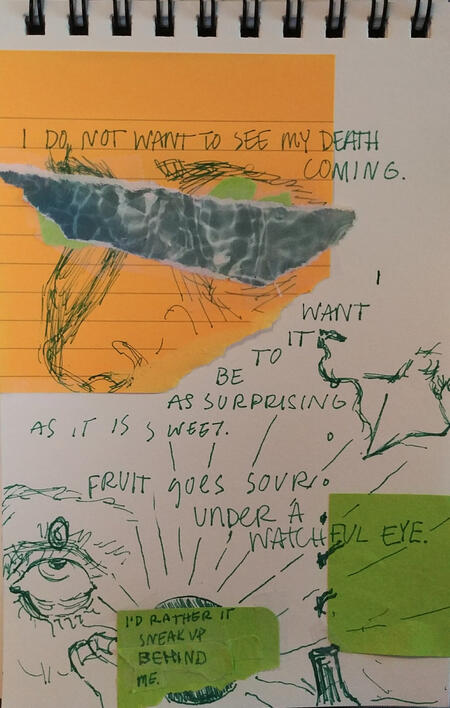 I DO NOT WANT TO SEE MY DEATH
COMING.
I
WANT
IT
TO
BE
AS SURPRISING
AS IT IS SWEET.
FRUIT gOES SOUR
UNDER A
WATCHFUL EYE.
I'D RATHER IT
SNEAK UP
BEHIND
ME.